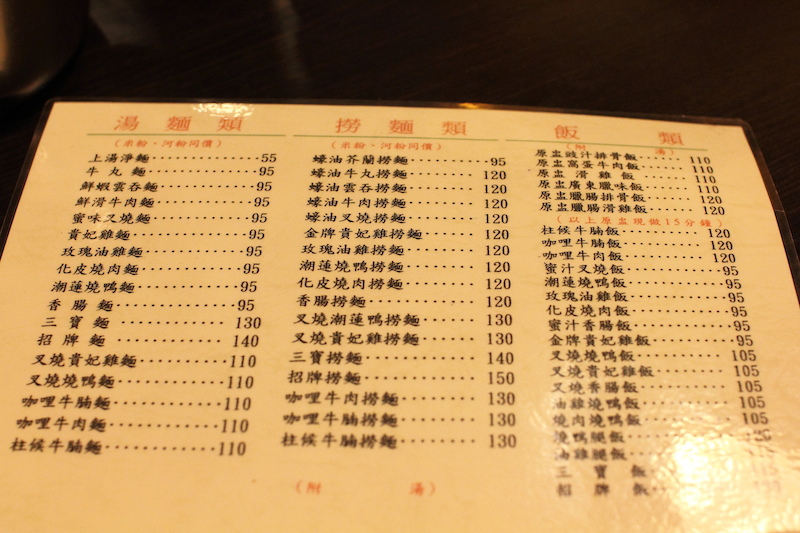 湯麵類
(米粉・河粉同價)
上湯淨麵 55
牛丸麵 95
鮮蝦雲吞麵 95
鮮滑牛肉麵 95
蜜味叉燒麵 95
貴妃雞麵 95
玫瑰油雞麵 95
化皮燒肉麵 95
潮蓮燒鴨麵 95
香腸麵 95
三寶麵 130
招牌麵 140
叉燒貴妃雞麵 110
叉燒燒鴨麵 110
咖哩牛腩麵 110
咖哩牛肉麵 110
柱候牛腩麵 110
撈麵類
(米粉・河粉同價)
蠔油芥蘭撈麵 95
蠔油牛丸撈麵 120
蠔油雲吞撈麵 120
蠔油牛肉撈麵 120
蠔油叉燒撈麵 120
金牌貴妃雞撈麵 120
玫瑰油雞撈麵 120
潮蓮燒鴨撈麵 120
化皮燒肉撈麵 120
香腸撈麵 120
叉燒潮蓮鴨撈麵 130
叉燒貴妃雞撈麵 130
三寶撈麵 140
招牌撈麵 150
咖哩牛肉撈麵 130
咖哩牛腩撈麵 130
柱候牛腩撈麵 130
(附湯)
飯類
(附湯)
原盅豉汁排骨飯 110
原盅窩蛋牛肉飯 110
原盅滑雞飯 110
原盅廣東臘味飯 110
原盅臘腸排骨飯 120
原盅臘腸滑雞飯 120
(以上原盅現做15分鐘)
柱候牛腩飯 120
咖哩牛腩飯 120
咖哩牛肉飯 120
蜜汁叉燒飯 95
潮蓮燒鴨飯 95
玫瑰油雞飯 95
化皮燒肉飯 95
蜜汁香腸飯 95
金牌貴妃雞飯 95
叉燒燒鴨飯 105
叉燒貴妃雞飯 105
叉燒香腸飯 105
油雞燒鴨飯 105
燒肉燒鴨飯 105
燒鴨腿飯
油雞腿飯
三寶飯
招牌飯